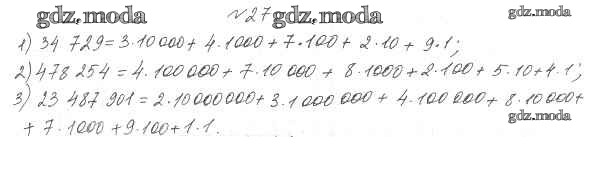 gdz.moda №27 gdz.moda gdz.moda
1) 34 729 = 3·10 000 + 4·1000 + 7·100 + 2·10 + 9·1;
2) 478 254 = 4·100 000 + 7·10 000 + 8·1000 + 2·100 + 5·10 + 4·1;
3) 23 487 901 = 2·10000000 + 3·1 000 000 + 4·100 000 + 8·10 000 +
gdz.moda
+ 7·1000 + 9·100 + 1·1.